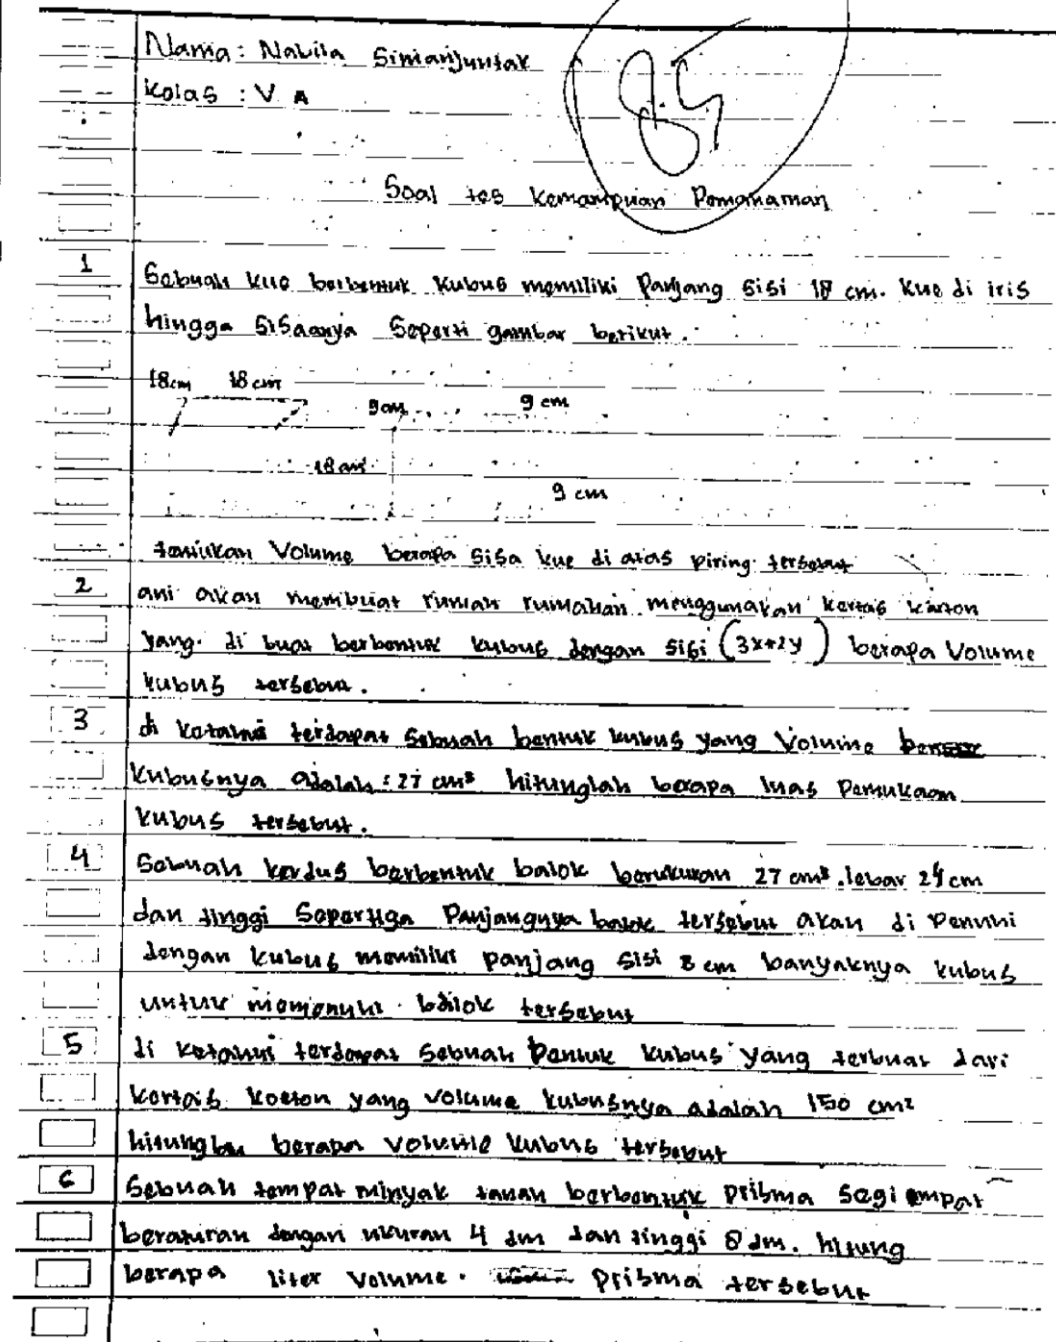 Nama : Nabila Simanjuntak
Kelas : V A
85
Soal tes kemampuan Pemahaman
1 Sebuah kue berbentuk kubus memiliki Panjang sisi 18 cm. kue di iris
hingga sisaanya Seperti gambar berikut.
18cm 18 cm
9cm 9 cm
18 cm
9 cm
tentukan Volume berapa sisa kue di atas piring tersebut
2 ani akan membuat rumah rumahan menggunakan kertas karton
yang di buat berbentuk kubus dengan sisi (3x+2y) berapa Volume
kubus tersebut.
3 di ketahui terdapat sebuah bentuk kubus yang Volume
kubusnya adalah : 27 cm³ hitunglah berapa luas Permukaan
kubus tersebut.
4 Sebuah kerdus berbentuk balok berukuran 27 cm³. lebar 24 cm
dan tinggi Sepertiga Panjangnya balok tersebut akan di Penuhi
dengan kubus memiliki panjang sisi 3 cm banyaknya kubus
untuk memenuhi balok tersebut
5 di ketahui terdapat sebuah bentuk kubus yang terbuat dari
kertas koston yang volume kubusnya adalah 150 cm²
hitunglau berapa volume kubus tersebut
6 Sebuah tempat minyak tanah berbentuk prisma segi empat
beraturan dengan ukuran 4 dm dan tinggi 8 dm. hitung
berapa liter volume. prisma tersebut